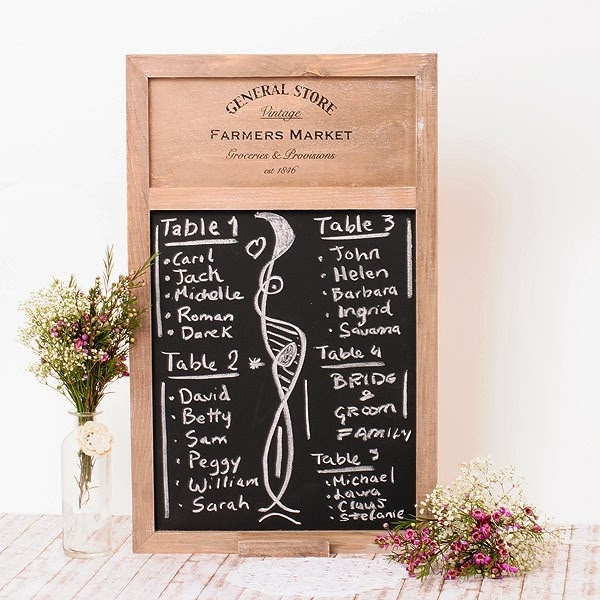 GENERAL STORE
Vintage
FARMERS MARKET
Groceries & Provisions
est 1846
Table 1
• Carol
• Jack
• Michelle
• Roman
• Darek
Table 2
• David
• Betty
• Sam
• Peggy
• William
• Sarah
Table 3
• John
• Helen
• Barbara
• Ingrid
• Savanna
Table 4
BRIDG
&
GROOM
FAMILY
Table 5
• Michael
• Laura
• Claus
• Stefanie